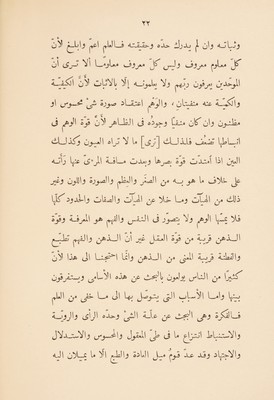 ٢٢
وثباته وان لم يدرك حدّه وحقيقته فالعلم اعمّ وابلغ لأنّ
كلّ معلوم معروف وليس كلّ معروف معلوما ألا ترى أنّ
الموحّدين يعرفون ربّهم ولا يعلمونه إلّا بالاثبات لأنّ الكيفيّة
والكمّيّة عنه منفيتان، والوهم اعتقاد صورة شئ محسوس او
مظنون وان كان منفيّا وجوده فى الظاهر لأنّ قوّة الوهم فى
انبساطها تضعّف فلذلك [ترى] ما لا تراه العيون وكذلك
العين اذا امتدّت قوّة بصرها وبعدت مسافة المرئى عنها رأته
على خلاف ما هو به من الصغر والعظم والصورة واللون وغير
ذلك من الهيآت وما خلا عن الهيآت والصفات والحدود كلّها
فلا يتصوّر فى النفس والفهم هو المعرفة وقوّة
الذهن قريبة من قوّة العقل غير أنّ الذهن والفهم تطبّع
والفطنة قريبة المعنى من الذهن وانّما احتجنا الى هذا لأنّ
كثيرًا من الناس يولعون بالبحث عن هذه الأسامى ويستفرقون
بينها واما الأسباب التى يتوصّل بها الى ما خفى من العلم
فالفكرة وهى البحث عن علّة الشئ وحدّه الرأى والرويّة
والاستنباط انتزاع ما فى طىّ المعقول والمحسوس والاستدلال
والاجتهاد وقد عدّ قوم ميل العادة والطبع الّا ما يميلان اليه